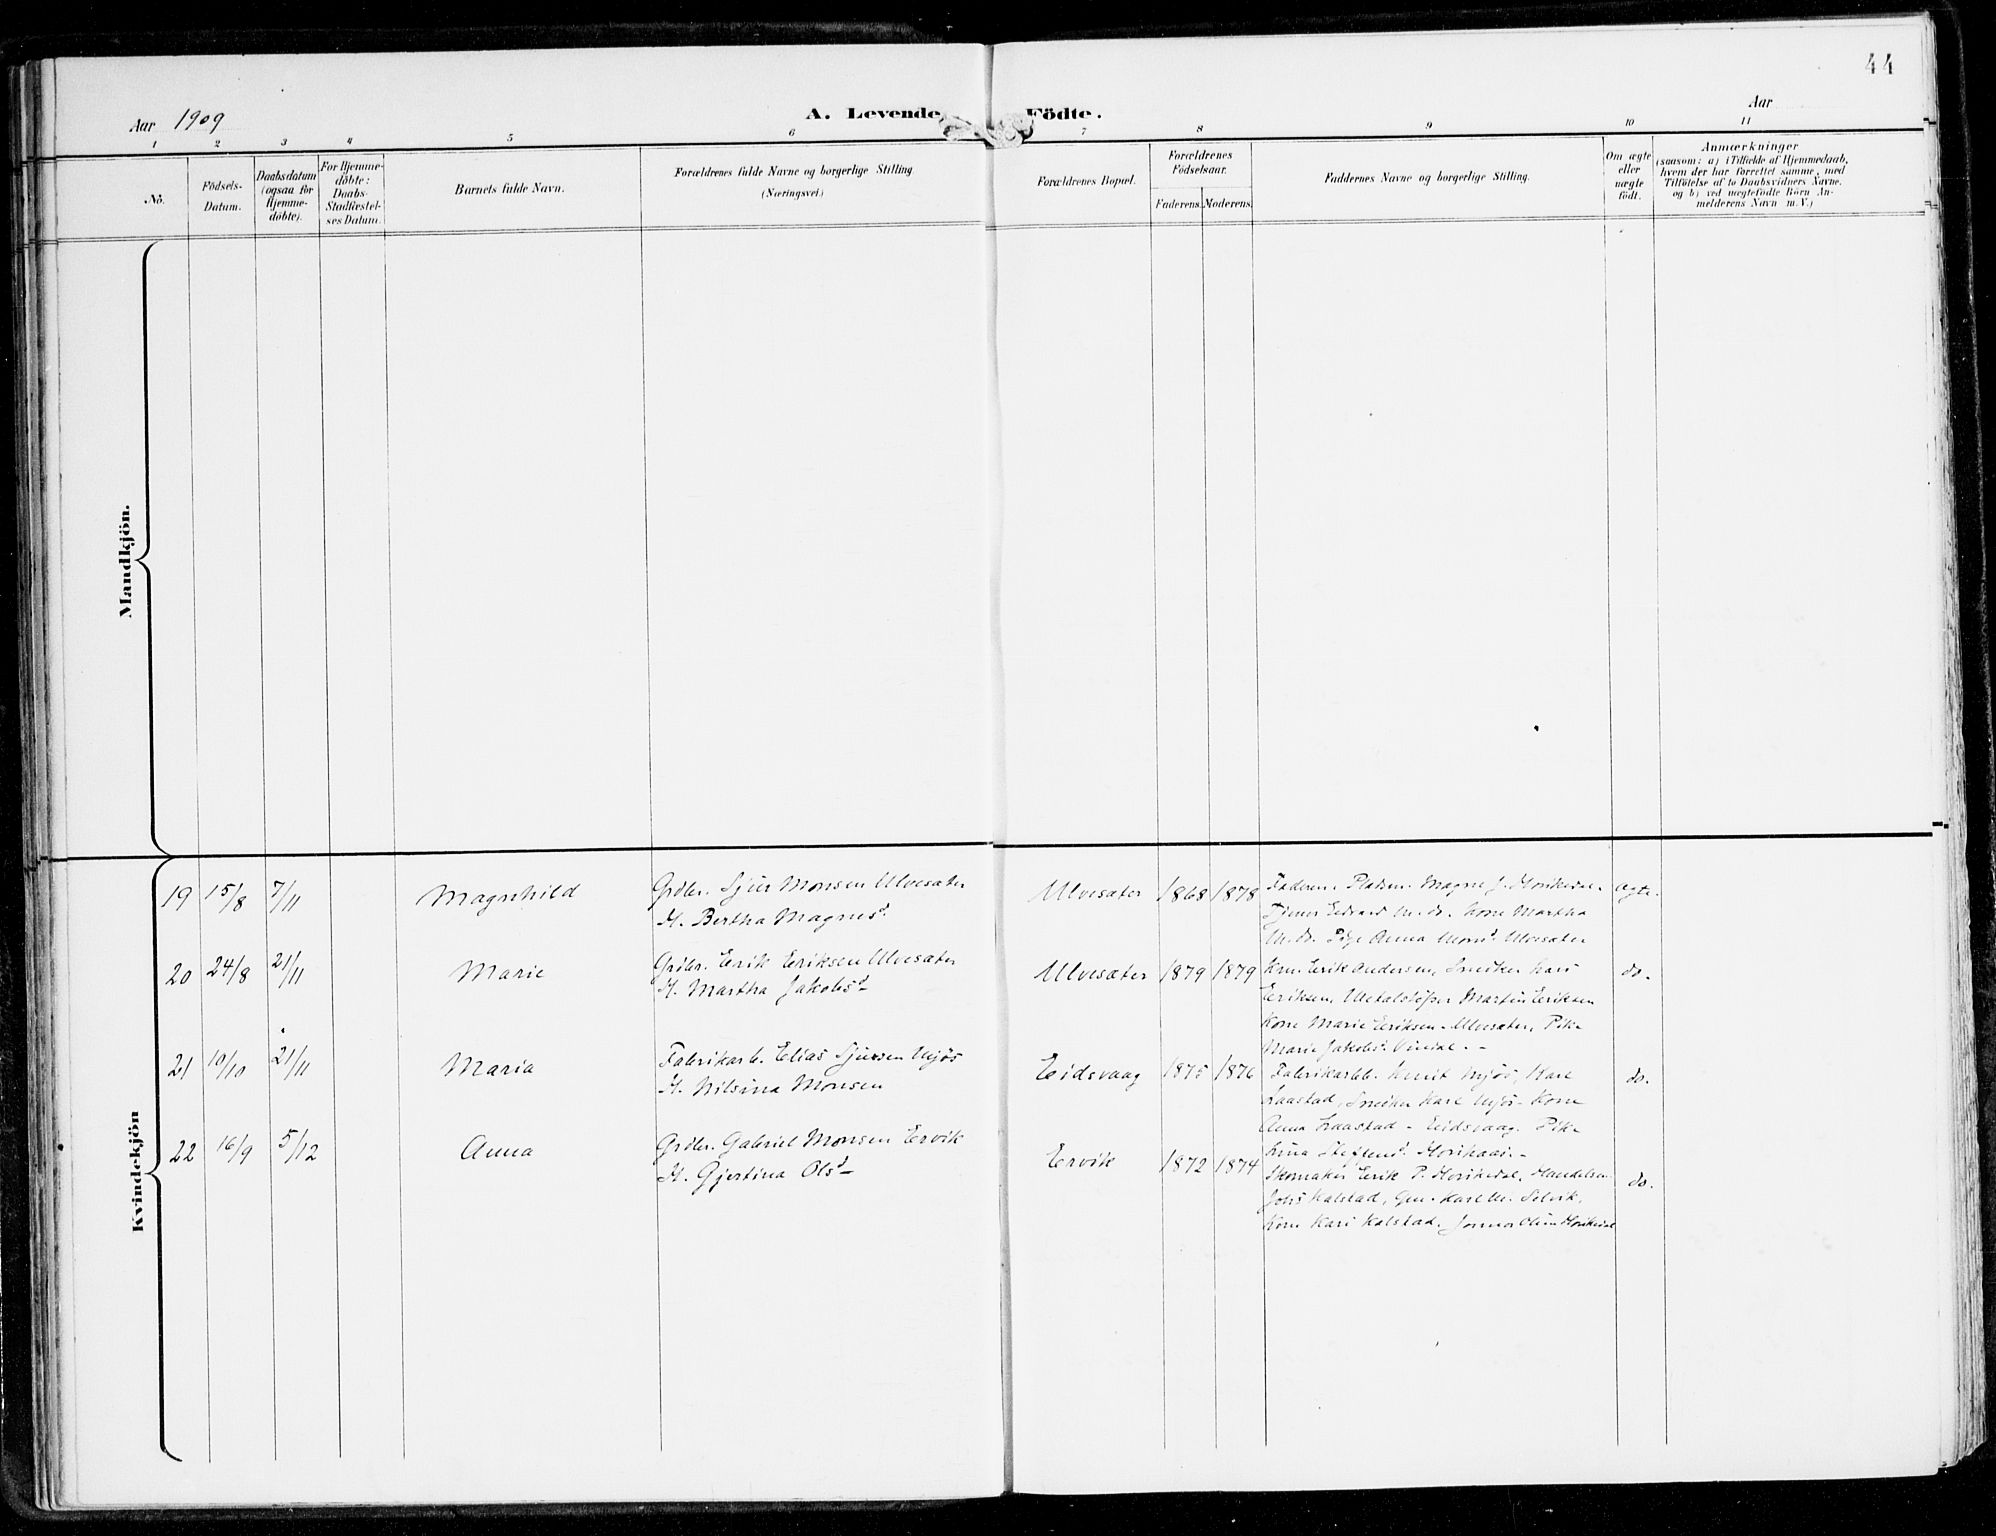 44
Aar 1909
A. Levende Födte.
Aar
1 2 3 4 5 6 7 8 9 10 11
No.
Födsels-
Datum.
Daabsdatum
(ogsaa for
Hjemme-
döbte).
For Hjemme-
döbte:
Daabs-
Stadfæstel-
ses Datum.
Barnets fulde Navn.
Forældrenes fulde Navne og borgerlige Stilling
(Næringsvei.)
Forældrenes Bopæl.
Forældrenes
Födselsaar.
Faderens. Moderens.
Faddernes Navne og borgerlige Stilling.
Om ægte
eller
uægte
födt.
Anmærkninger
(saasom: a) i Tilfælde af Hjemmedaab,
hvem der har forrettet samme, med
Tilföielse af to Daabsvidners Navne.
og b) ved uægtefödte Börn An-
melderens Navn m. V.)
Mandkjön.
Kvindekjön
19 15/8 7/11 Magnhild
Grdbr. Sjur Monsen Ulvesæter
H. Bertha Magnusd.
Ulvesæter 1868 1878
Faderen, Pladsm. Magne J.
Tjener Edvard M. ds. Kone Martha
M. ds. Pige Anna Monsd. Ulvesæter
ægte.
20 24/8 21/11 Marie
Grdbr. Erik Eriksen Ulvesæter
H. Martha Jakobsd.
Ulvesæter 1879 1879
Erik Andersen, Snedker Lars
Eriksen, Metalstøber Martin Eriksen
Kone Marie Eriksen - Ulvesæter, Pike
Marie Jakobsd.
do.
21 10/10 21/11 Maria
Fabrikarb. Elias Sjursen Mjøs
H. Nilsina Monsen
Eidsvaag 1875 1876
Fabrikarbb. Knut Mjøs, Karl
Laastad, Snedker Karl Mjøs - Kone
Anna Laastad - Eidsvaag. Pike
Lina
do.
22 16/9 5/12 Anna
Grdbr. Gabriel Monsen Ervik
H. Gjertina Olsd.
Ervik 1872 1874
Skomaker Erik P.
Johs Kalstad, Gm. Karl M.
Kone Kari Kalstad.
do.